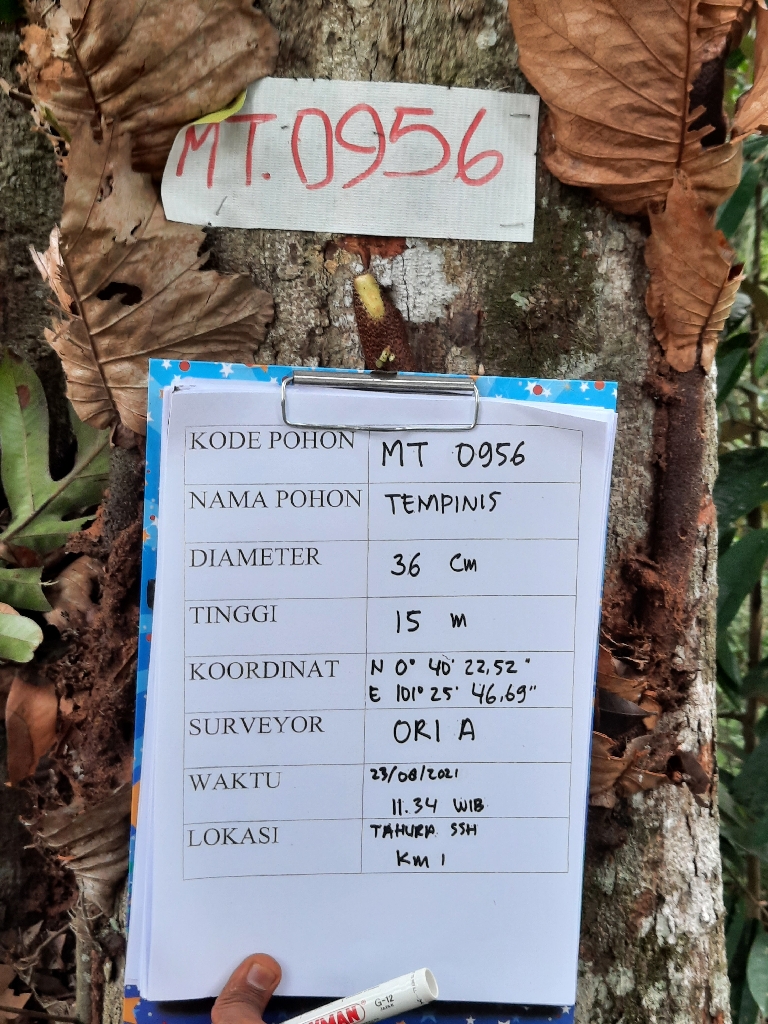 MT. 0956
KODE POHON MT 0956
NAMA POHON TEMPINIS
DIAMETER 36 Cm
TINGGI 15 m
KOORDINAT N 0° 40' 22,52"
E 101° 25' 46,69"
SURVEYOR ORI A
WAKTU 23/08/2021
11.34 WIB
LOKASI TAHURA SSH
Km 1
G-12